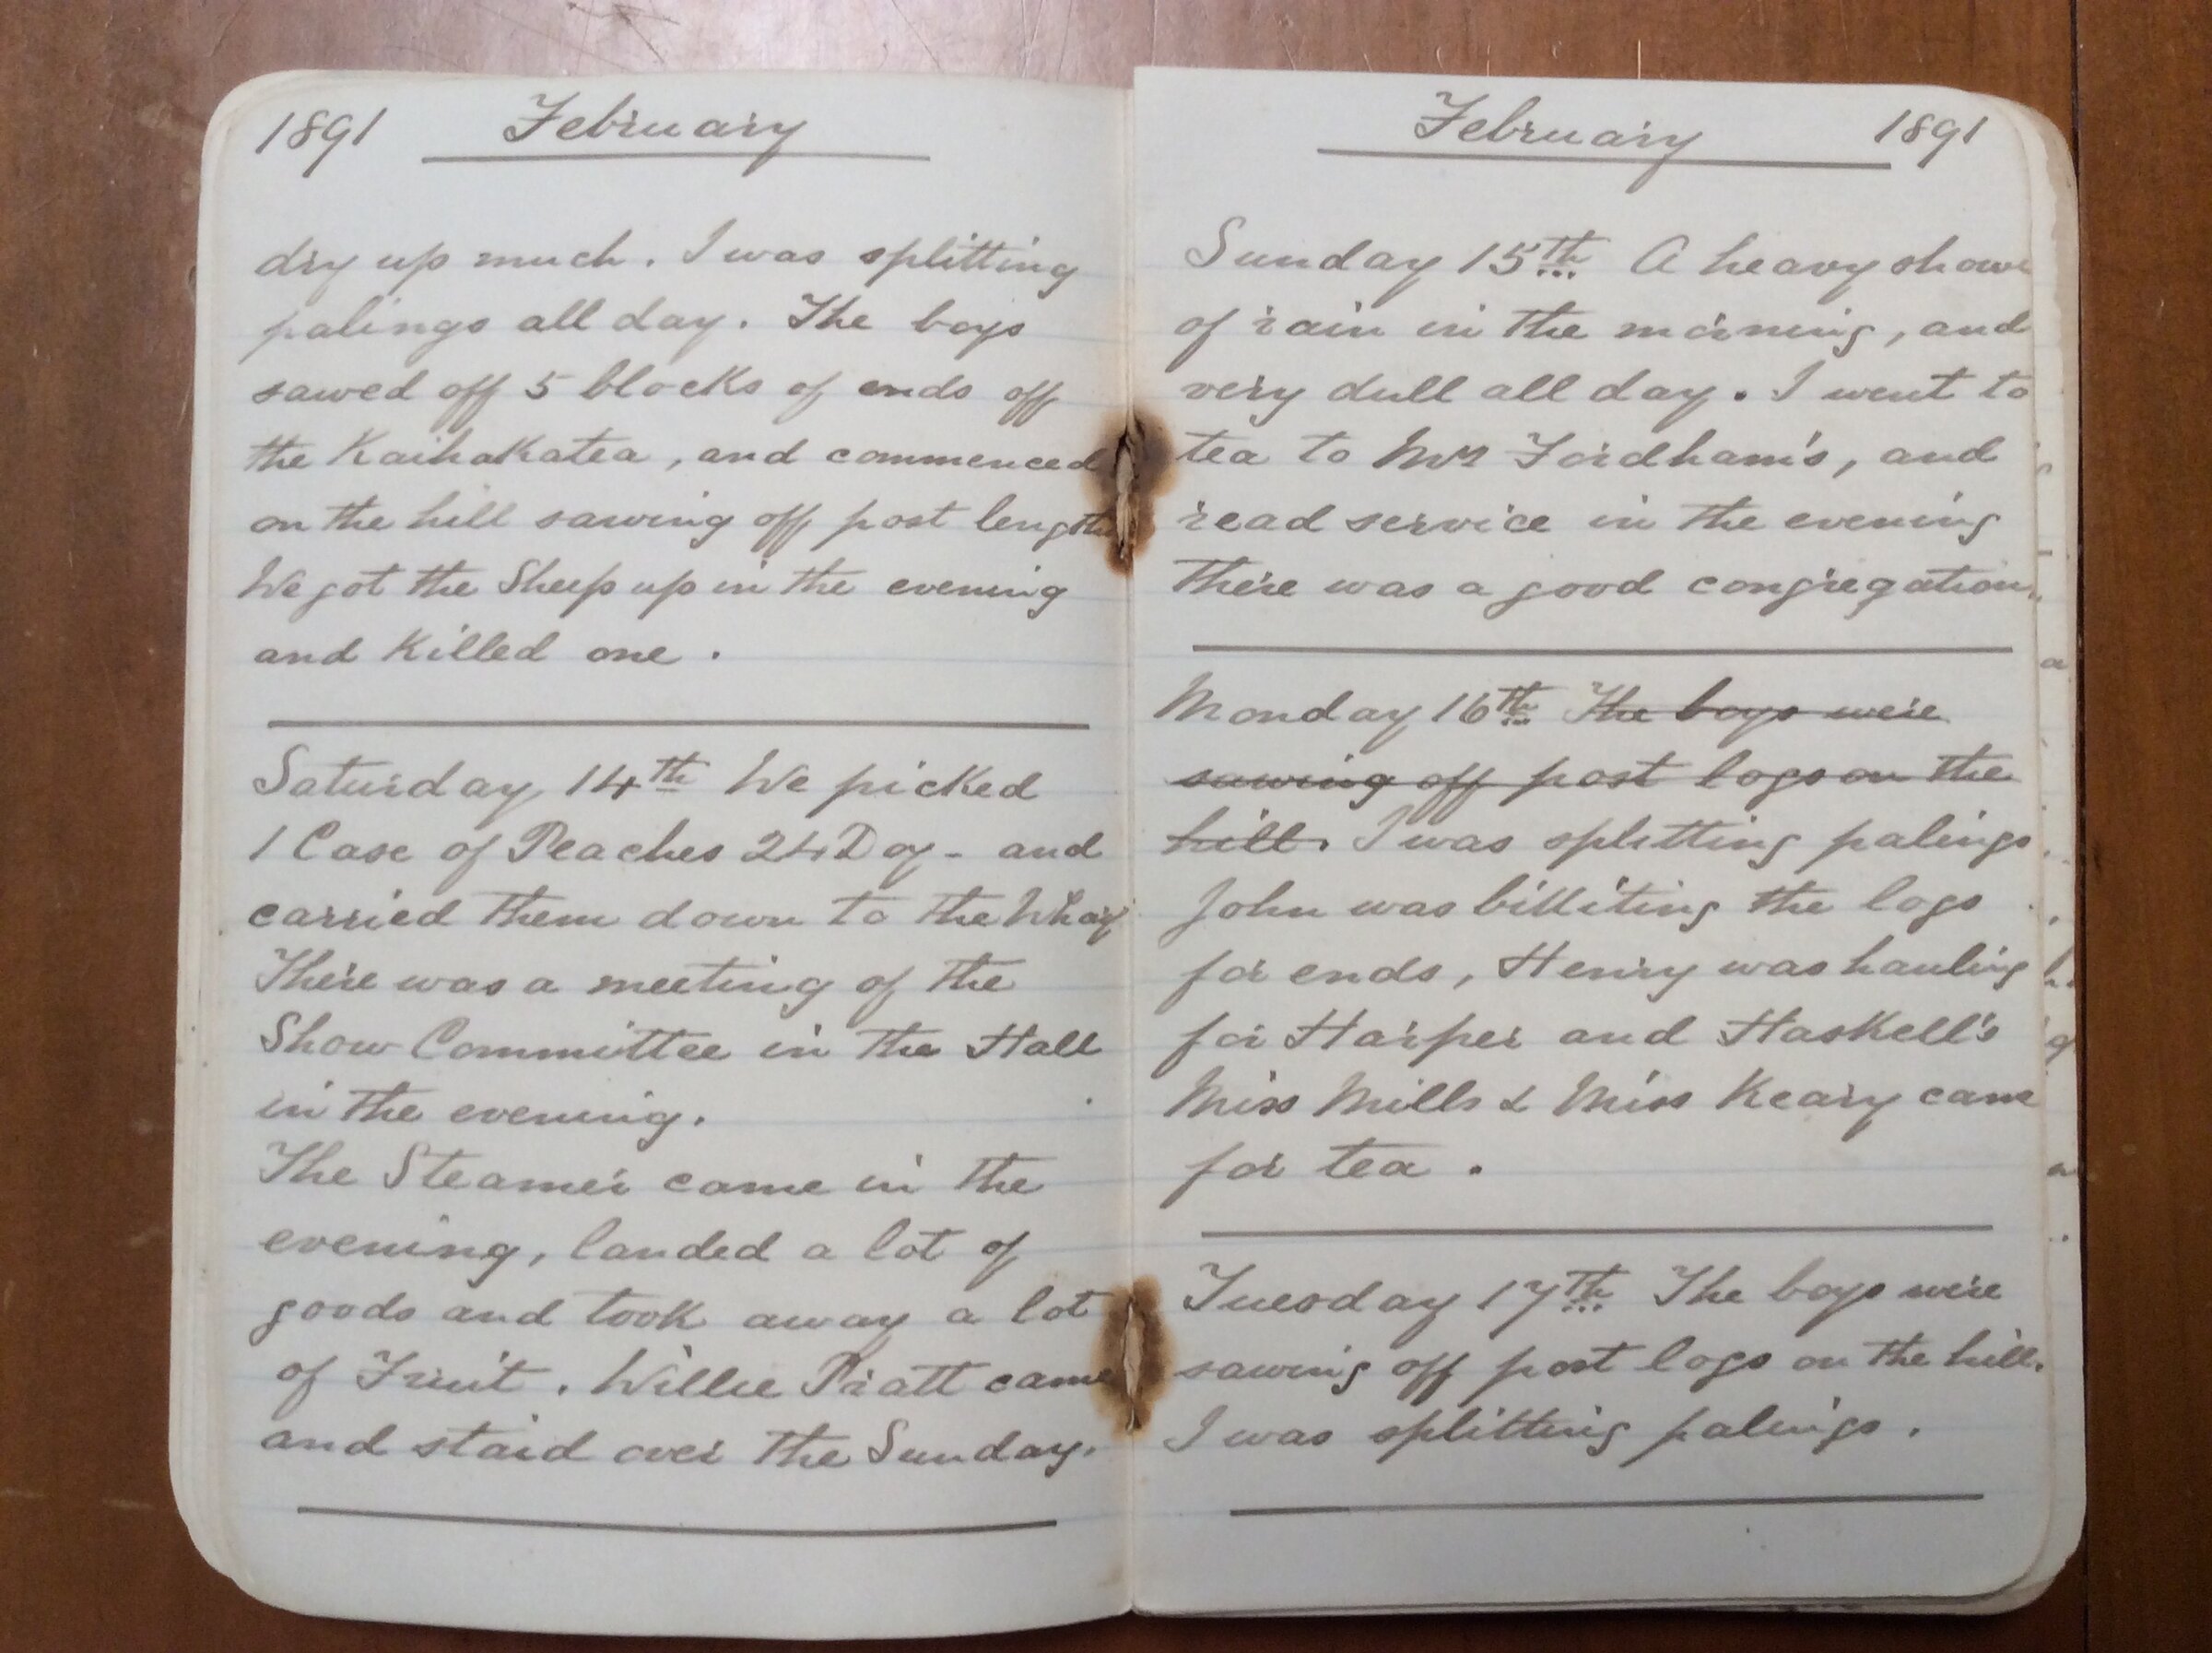 1891 February
dry up much. I was splitting
palings all day. The boys
sawed off 5 blocks of ends off
the Kaihakatea, and commenced
on the hill sawing off post length
We got the Sheep up in the evening
and Killed one.
Saturday 14th We picked
1 Case of Peaches 24 Doz - and
carried them down to the Wharf
There was a meeting of the
Show Committee in the Hall
in the evening.
The Steamer came in the
evening, landed a lot of
goods and took away a lot
of Fruit. Willie Pratt came
and staid over the Sunday.
February 1891
Sunday 15th A heavy show
of rain in the morning, and
very dull all day. I went to
tea to Mrs Fordham's, and
read service in the evening
there was a good congregation.
Monday 16th The boys were
sawing off post logs on the
hill. I was splitting palings
John was billiting the logs
for ends, Henry was hauling
for Harper and Haskell's
Miss Mills & Miss Keary came
for tea.
Tuesday 17th The boys were
sawing off post logs on the hill.
I was splitting palings.